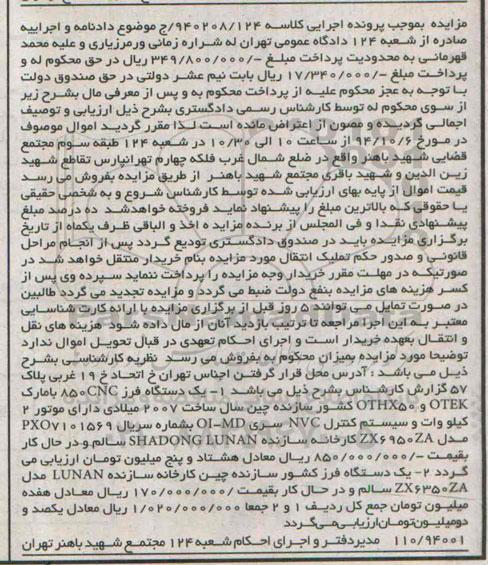 مزایده بموجب پرونده اجرایی کلاسه ۹۴۰۲۰۸/۱۲۴/ج موضوع دادنامه و اجراییه
صادره از شعبه ۱۲۴ دادگاه عمومی تهران له شراره زمانی ورمرزیاری و علیه محمد
قهرمانی به محدودیت پرداخت مبلغ -/۳۴۹/۸۰۰/۰۰۰ ریال در حق محکوم له و
پرداخت مبلغ -/۱۷/۳۴۰/۰۰۰ ریال بابت نیم عشر دولتی در حق صندوق دولت
با توجه به عجز محکوم علیه از پرداخت محکوم به و پس از معرفی مال بشرح زیر
از سوی محکوم له توسط کارشناس رسمی دادگستری بشرح ذیل ارزیابی و توصیف
اجمالی گردیده و مصون از اعتراض مانده است لذا مقرر گردید اموال موصوف
در مورخ ۹۴/۱۰/۶ از ساعت ۱۰ الی ۱۰/۳۰ در شعبه ۱۲۴ طبقه سوم مجتمع
قضایی شهید باهنر واقع در ضلع شمال غرب فلکه چهارم تهرانپارس تقاطع شهید
زین الدین و شهید باقری مجتمع شهید باهنر از طریق مزایده بفروش می رسد
قیمت اموال از پایه بهای ارزیابی شده توسط کارشناس شروع و به شخصی حقیقی
یا حقوقی که بالاترین مبلغ را پیشنهاد نماید فروخته خواهدشد ده درصد مبلغ
پیشنهادی نقدا و فی المجلس از برنده مزایده اخذ و الباقی ظرف یکماه از تاریخ
برگزاری مزایده باید در صندوق دادگستری تودیع گردد پس از انجام مراحل
قانونی و صدور حکم تملیک انتقال مورد مزایده بنام خریدار منتقل خواهد شد در
صورتیکه در مهلت مقرر خریدار وجه مزایده را پرداخت ننماید سپرده وی پس از
کسر هزینه های مزایده بنفع دولت ضبط می گردد و مزایده تجدید می گردد طالبین
در صورت تمایل می توانند ۵ روز قبل از برگزاری مزایده با ارائه کارت شناسایی
معتبر به این اجرا مراجعه تا ترتیب بازدید آنان از مال داده شود هزینه های نقل
و انتقال بعهده خریدار است و اجرای احکام تعهدی در قبال تحویل اموال ندارد
توضیحا مورد مزایده بمیزان محکوم به بفروش می رسد نظریه کارشناسی بشرح
ذیل می باشد : آدرس محل قرار گرفتن اجناس تهران خ اتحاد خ ۱۹ غربی پلاک
۵۷ گزارش کارشناس بشرح ذیل می باشد ۱- یک دستگاه فرز CNC۸۵۰ با مارک
OTEK و OTHX۵۰ کشور سازنده چین سال ساخت ۲۰۰۷ میلادی دارای موتور ۲
کیلو وات و سیستم کنترل NVC سری OI-MD بشماره سریال PXO۷۱۰۱۵۶۹
مدل ZX۶۹۵۰ZA کارخانه سازنده SHADONG LUNAN سالم و در حال کار
بقیمت -/۸۵۰/۰۰۰/۰۰۰ ریال معادل هشتاد و پنج میلیون تومان ارزیابی می
گردد ۲- یک دستگاه فرز کشور سازنده چین کارخانه سازنده LUNAN مدل
ZX۶۳۵۰ZA سالم و در حال کار بقیمت /۱۷۰/۰۰۰/۰۰۰ ریال معادل هفده
میلیون تومان جمع کل ردیف ۱ و ۲ جمعا ۱/۰۲۰/۰۰۰/۰۰۰ ریال معادل یکصد و
دومیلیون‌تومان‌ارزیابی‌می‌گردد
۱۱۰/۹۴۰۰۱ مدیردفتر و اجرای احکام شعبه ۱۲۴ مجتمع شهید باهنر تهران